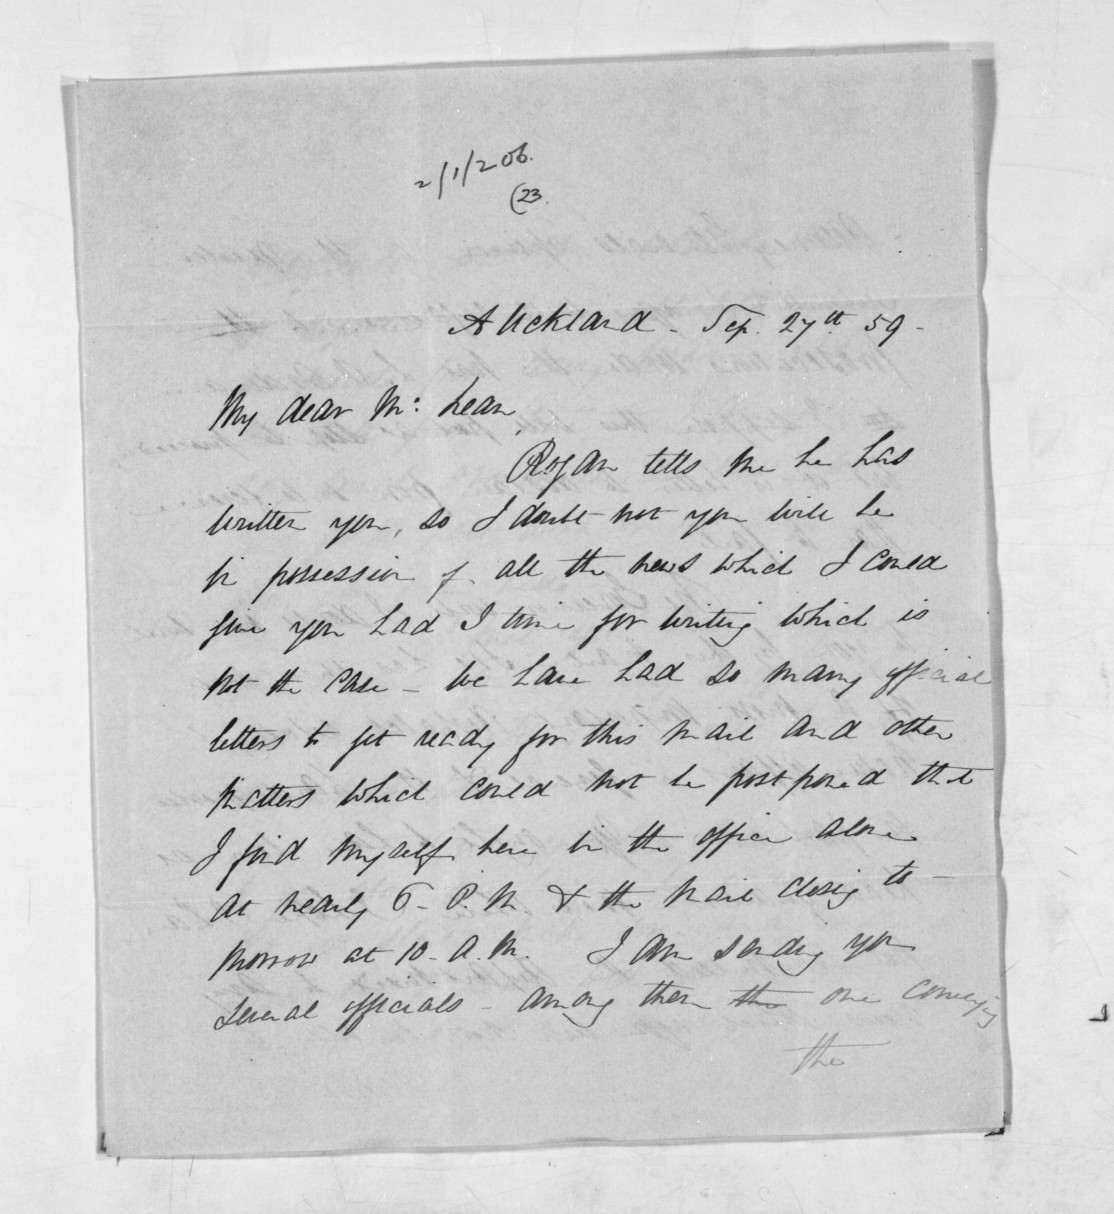 2/1/206.
(23.
Auckland - Sep. 27th 59 -
My dear Mc: Lean,
Rogan tells me he has
written you, so I doubt not you will be
in possession of all the news which I could
give you had I time for writing which is
not the case - We have had so many official
letters to get ready for this mail and other
matters which could not be postponed that
I find myself here in the office alone
at nearly 6 - P.M & the mail closing to -
morrow at 10 - A.M. I am sending you
several officials - among them the one conveying
the